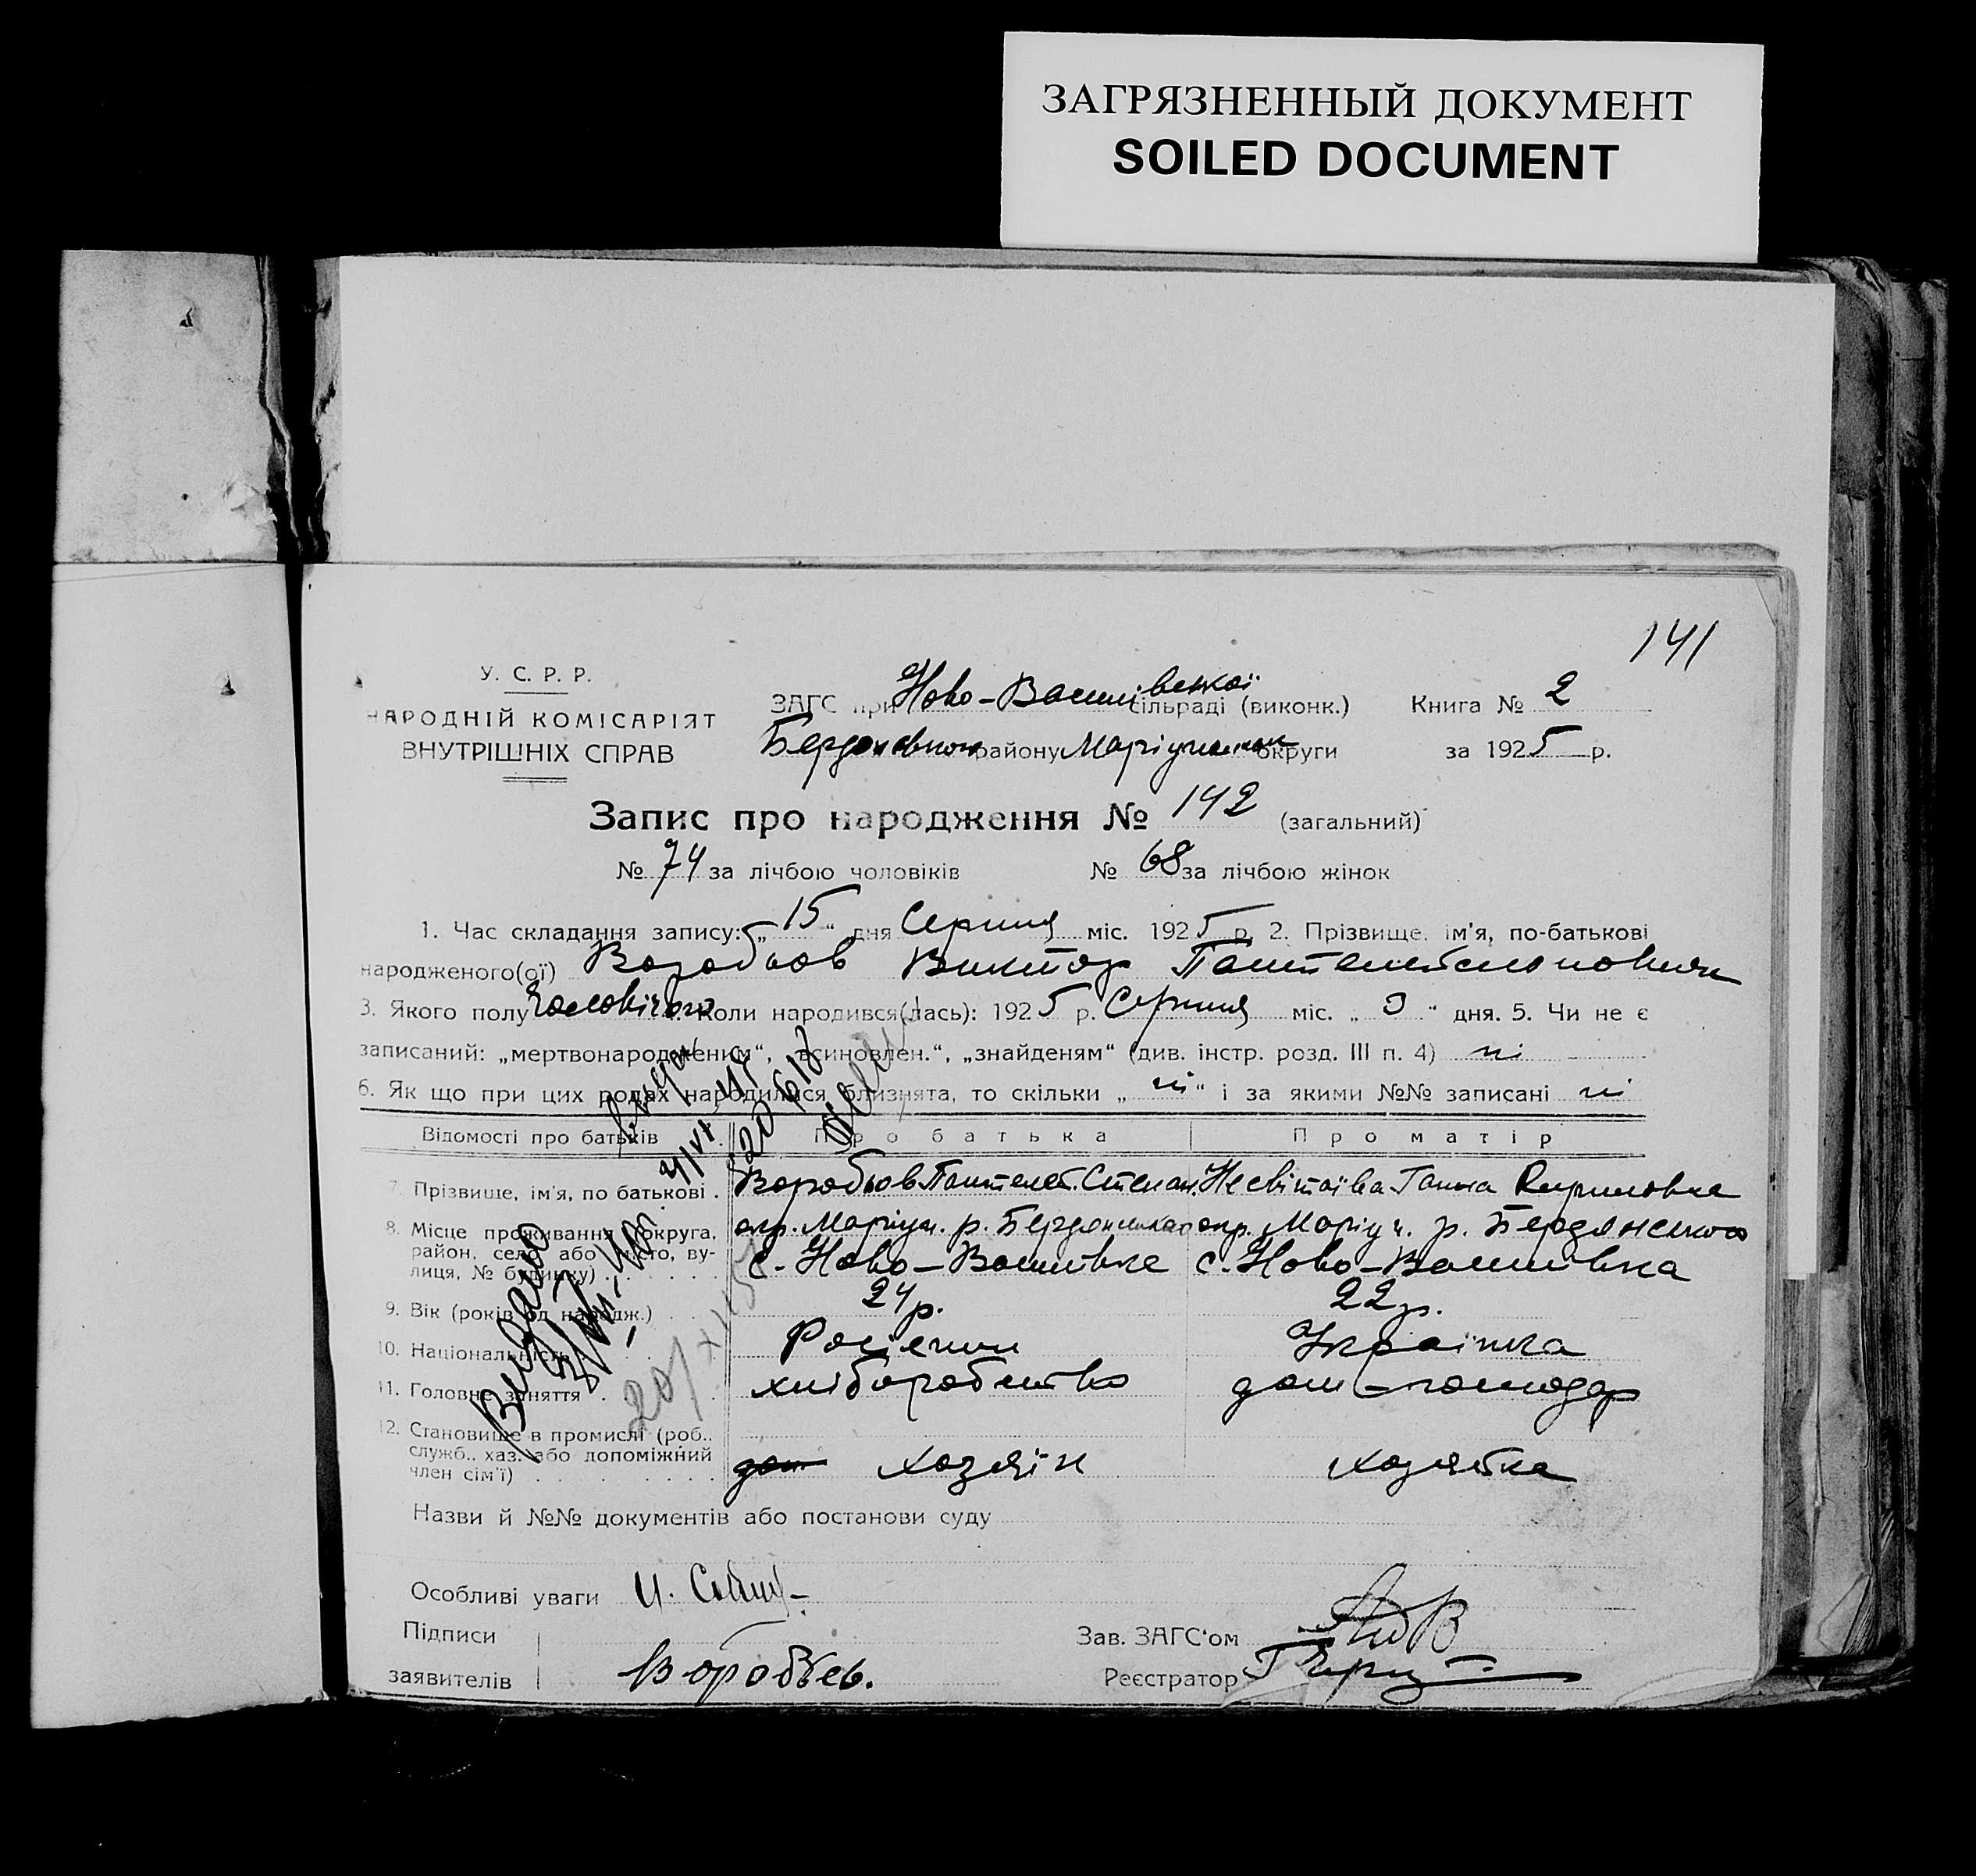 ЗАГРЯЗНЕННЫЙ ДОКУМЕНТ
SOILED DOCUMENT
141
У. С. Р. Р.
НАРОДНІЙ КОМІСАРІЯТ
ВНУТРІШНІХ СПРАВ
ЗАГС при Ново-Василівської сільраді (виконк.)
Бердянського району Маріупольської округи
Книга № 2
за 1925 р.
Запис про народження № 142 (загальний)
№ 74 за лічбою чоловіків № 68 за лічбою жінок
1. Час складання запису: „15“ дня Серпня міс. 1925 р. 2. Прізвище, ім'я, по-батькові
народженого(ої) Воробьов Виктор Пантелеймонович
3. Якого полу Чоловічого 4. Коли народився(лась): 1925 р. Серпня міс. „ “ дня. 5. Чи не є
записаний: „мертвонародженим“, „всиновлен.“, „знайденям“ (див. інстр. розд. III п. 4) ні
6. Як що при цих родах народилися близнята, то скільки „ні“ і за якими №№ записані ні
Відомості про батьків Про батька Про матір
7. Прізвище, ім'я, по батькові . Воробьов Пантелей. Степан. Несвітаїва Ганна Кириловна
8. Місце проживання (округа, район, село або місто, вулиця, № будинку) окр. Маріуп. р. Бердянського окр. Маріуп. р. Бердянського
с. Ново-Василівка с. Ново-Василівка
9. Вік (років од народж.) 24 р. 22 р.
10. Національність Росіянин Українка
11. Головне заняття хліборобство дом-господар
12. Становище в промислі (роб.. служб.. хаз. або допоміжний член сім'ї) дом хозяїн хозяйка
Назви й №№ документів або постанови суду
Особливі уваги
Підписи
заявителів Воробьев.
Зав. ЗАГС'ом
Реєстратор
Видано